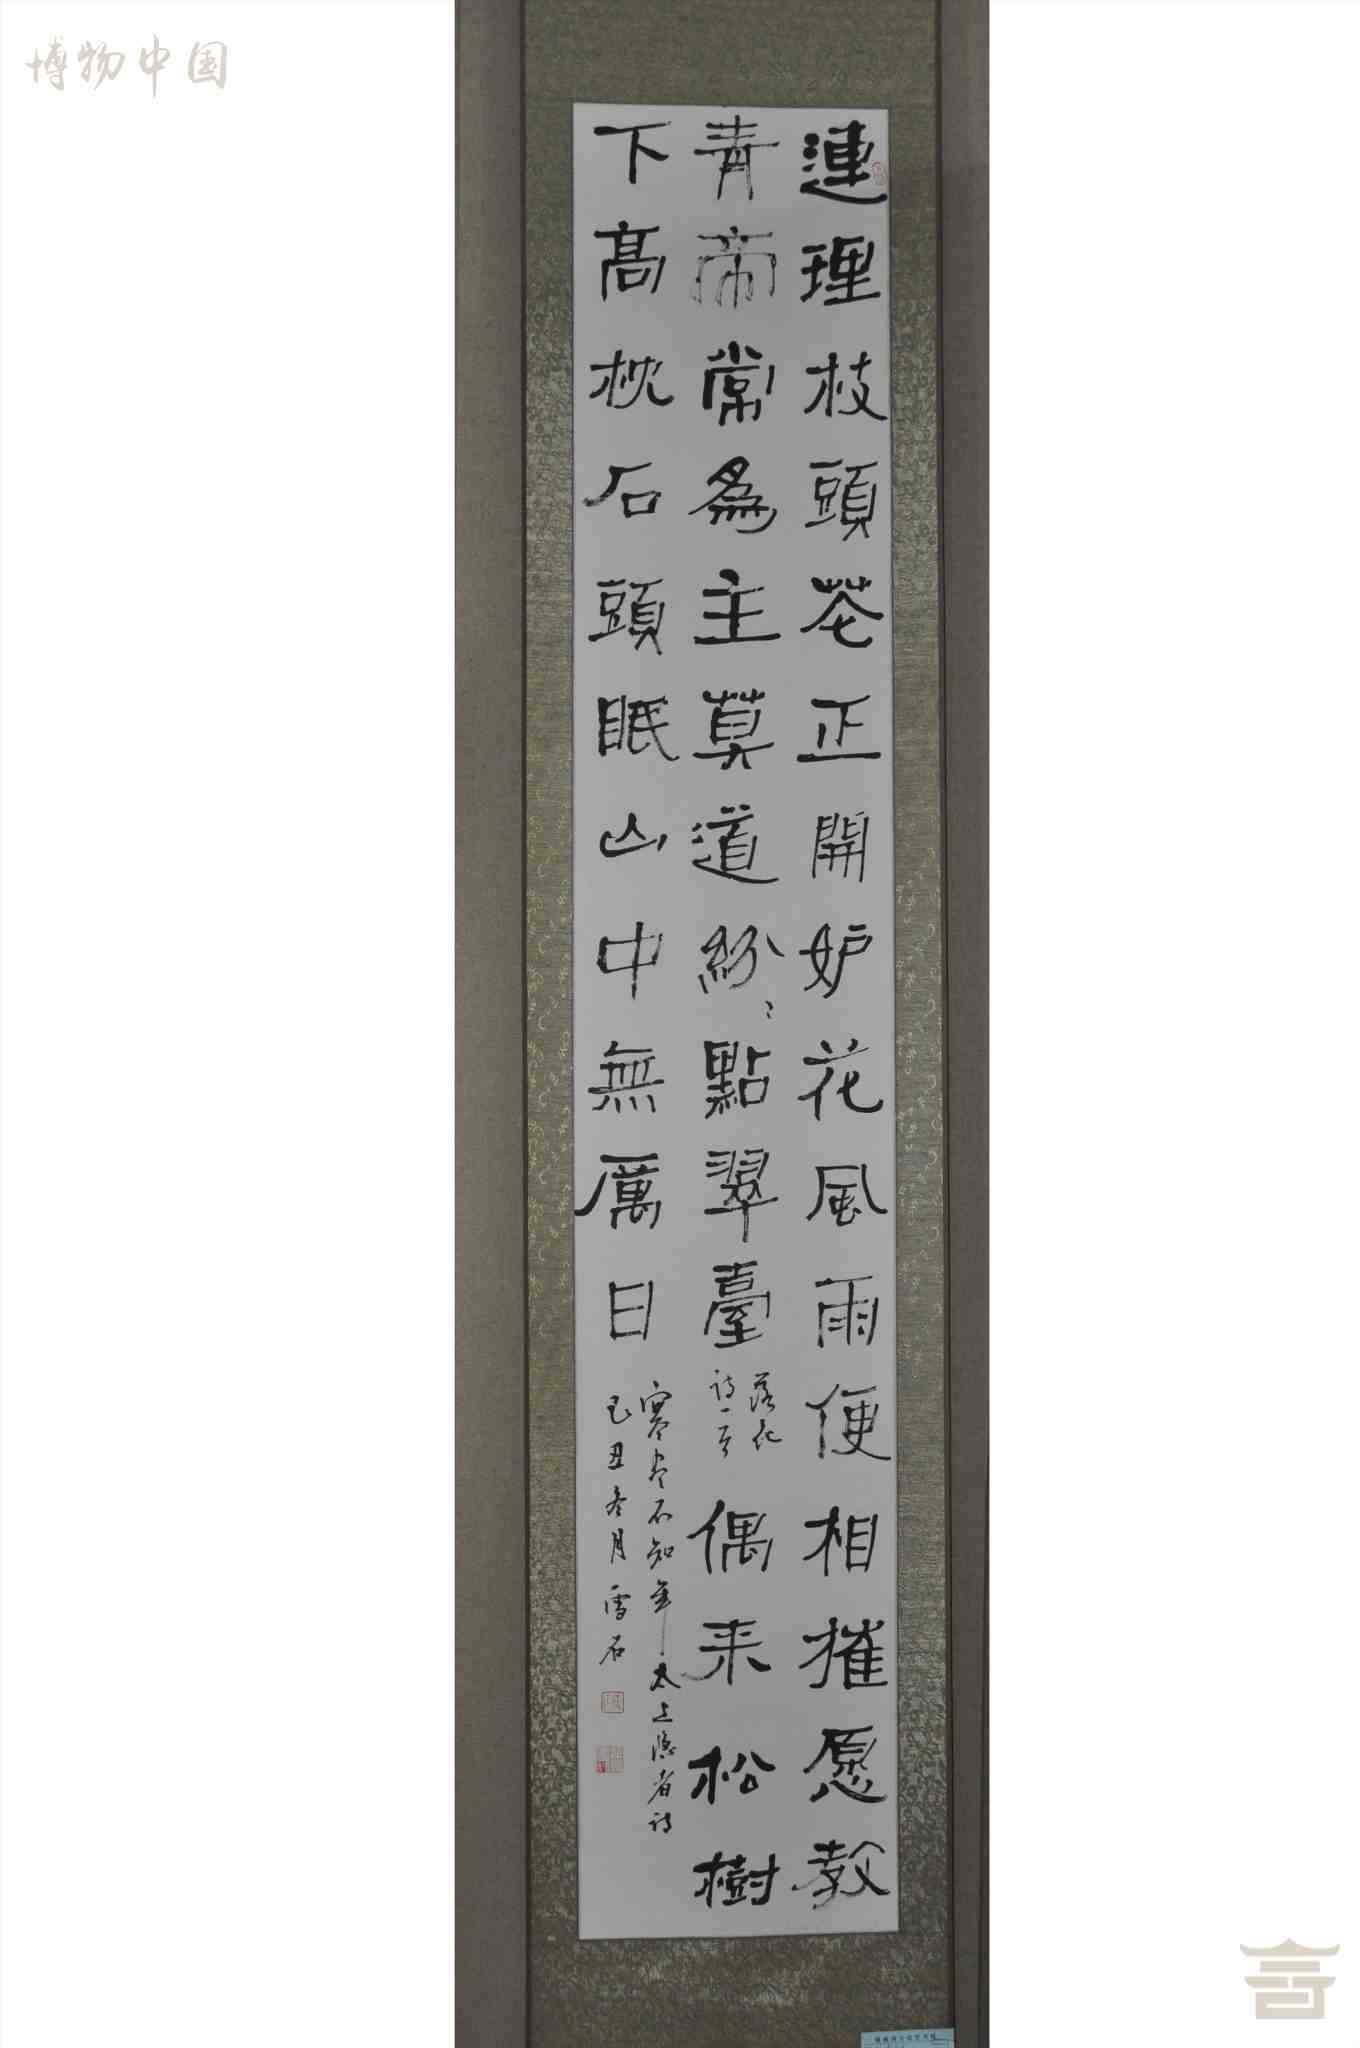 博物中国
連理枝頭花正開妒花風雨便相摧愿教
青帝常為主莫道紛〻點翠臺
落花
詩一首
偶来松樹
下高枕石頭眠山中無厲日
寒尽不知年太上隱者詩
己丑冬月雪石